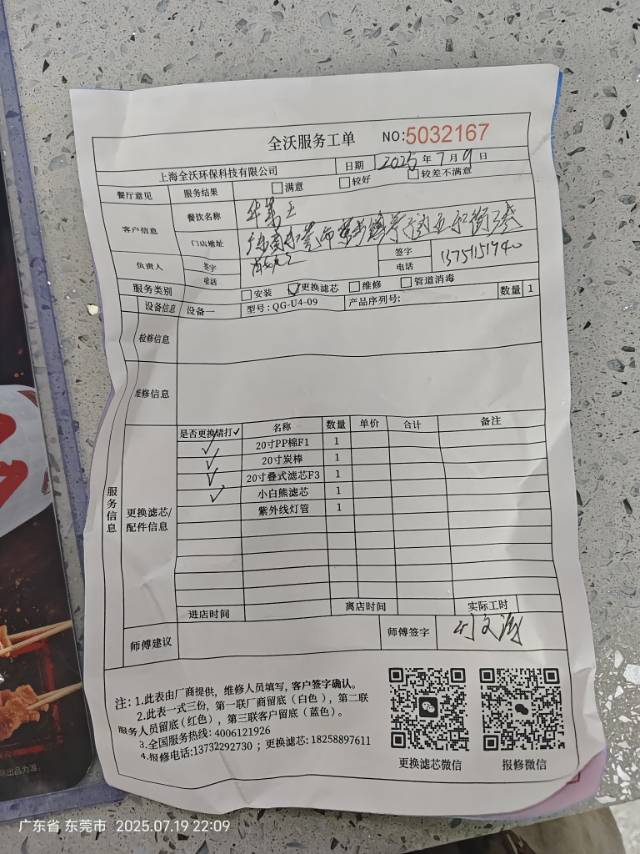 全沃服务工单 NO:5032167
上海全沃环保科技有限公司 日期 2025年7月9日
餐厅意见 服务结果 □满意 □较好 □较差不满意
客户信息 餐饮名称 华莱士
门店地址
负责人 签字 签字
电话 电话 13751151940
服务类别 □安装 ☑更换滤芯 □维修 □管道消毒
设备信息 设备一 型号: QG-U4-09 产品序列号: 数量 1
检修信息
维修信息
服务信息
更换滤芯/配件信息
是否更换请打✓ 名称 数量 单价 合计 备注
✓ 20寸PP棉F1 1
✓ 20寸炭棒 1
✓ 20寸叠式滤芯F3 1
✓ 小白熊滤芯 1
紫外线灯管 1
进店时间 离店时间 实际工时
师傅建议 师傅签字
注: 1.此表由厂商提供，维修人员填写，客户签字确认。
2.此表一式三份，第一联厂商留底（白色），第二联
服务人员留底（红色），第三联客户留底（蓝色）。
3.全国服务热线: 4006121926
4.报修电话:13732292730；更换滤芯: 18258897611
更换滤芯微信 报修微信
广东省 东莞市 2025.07.19 22:09